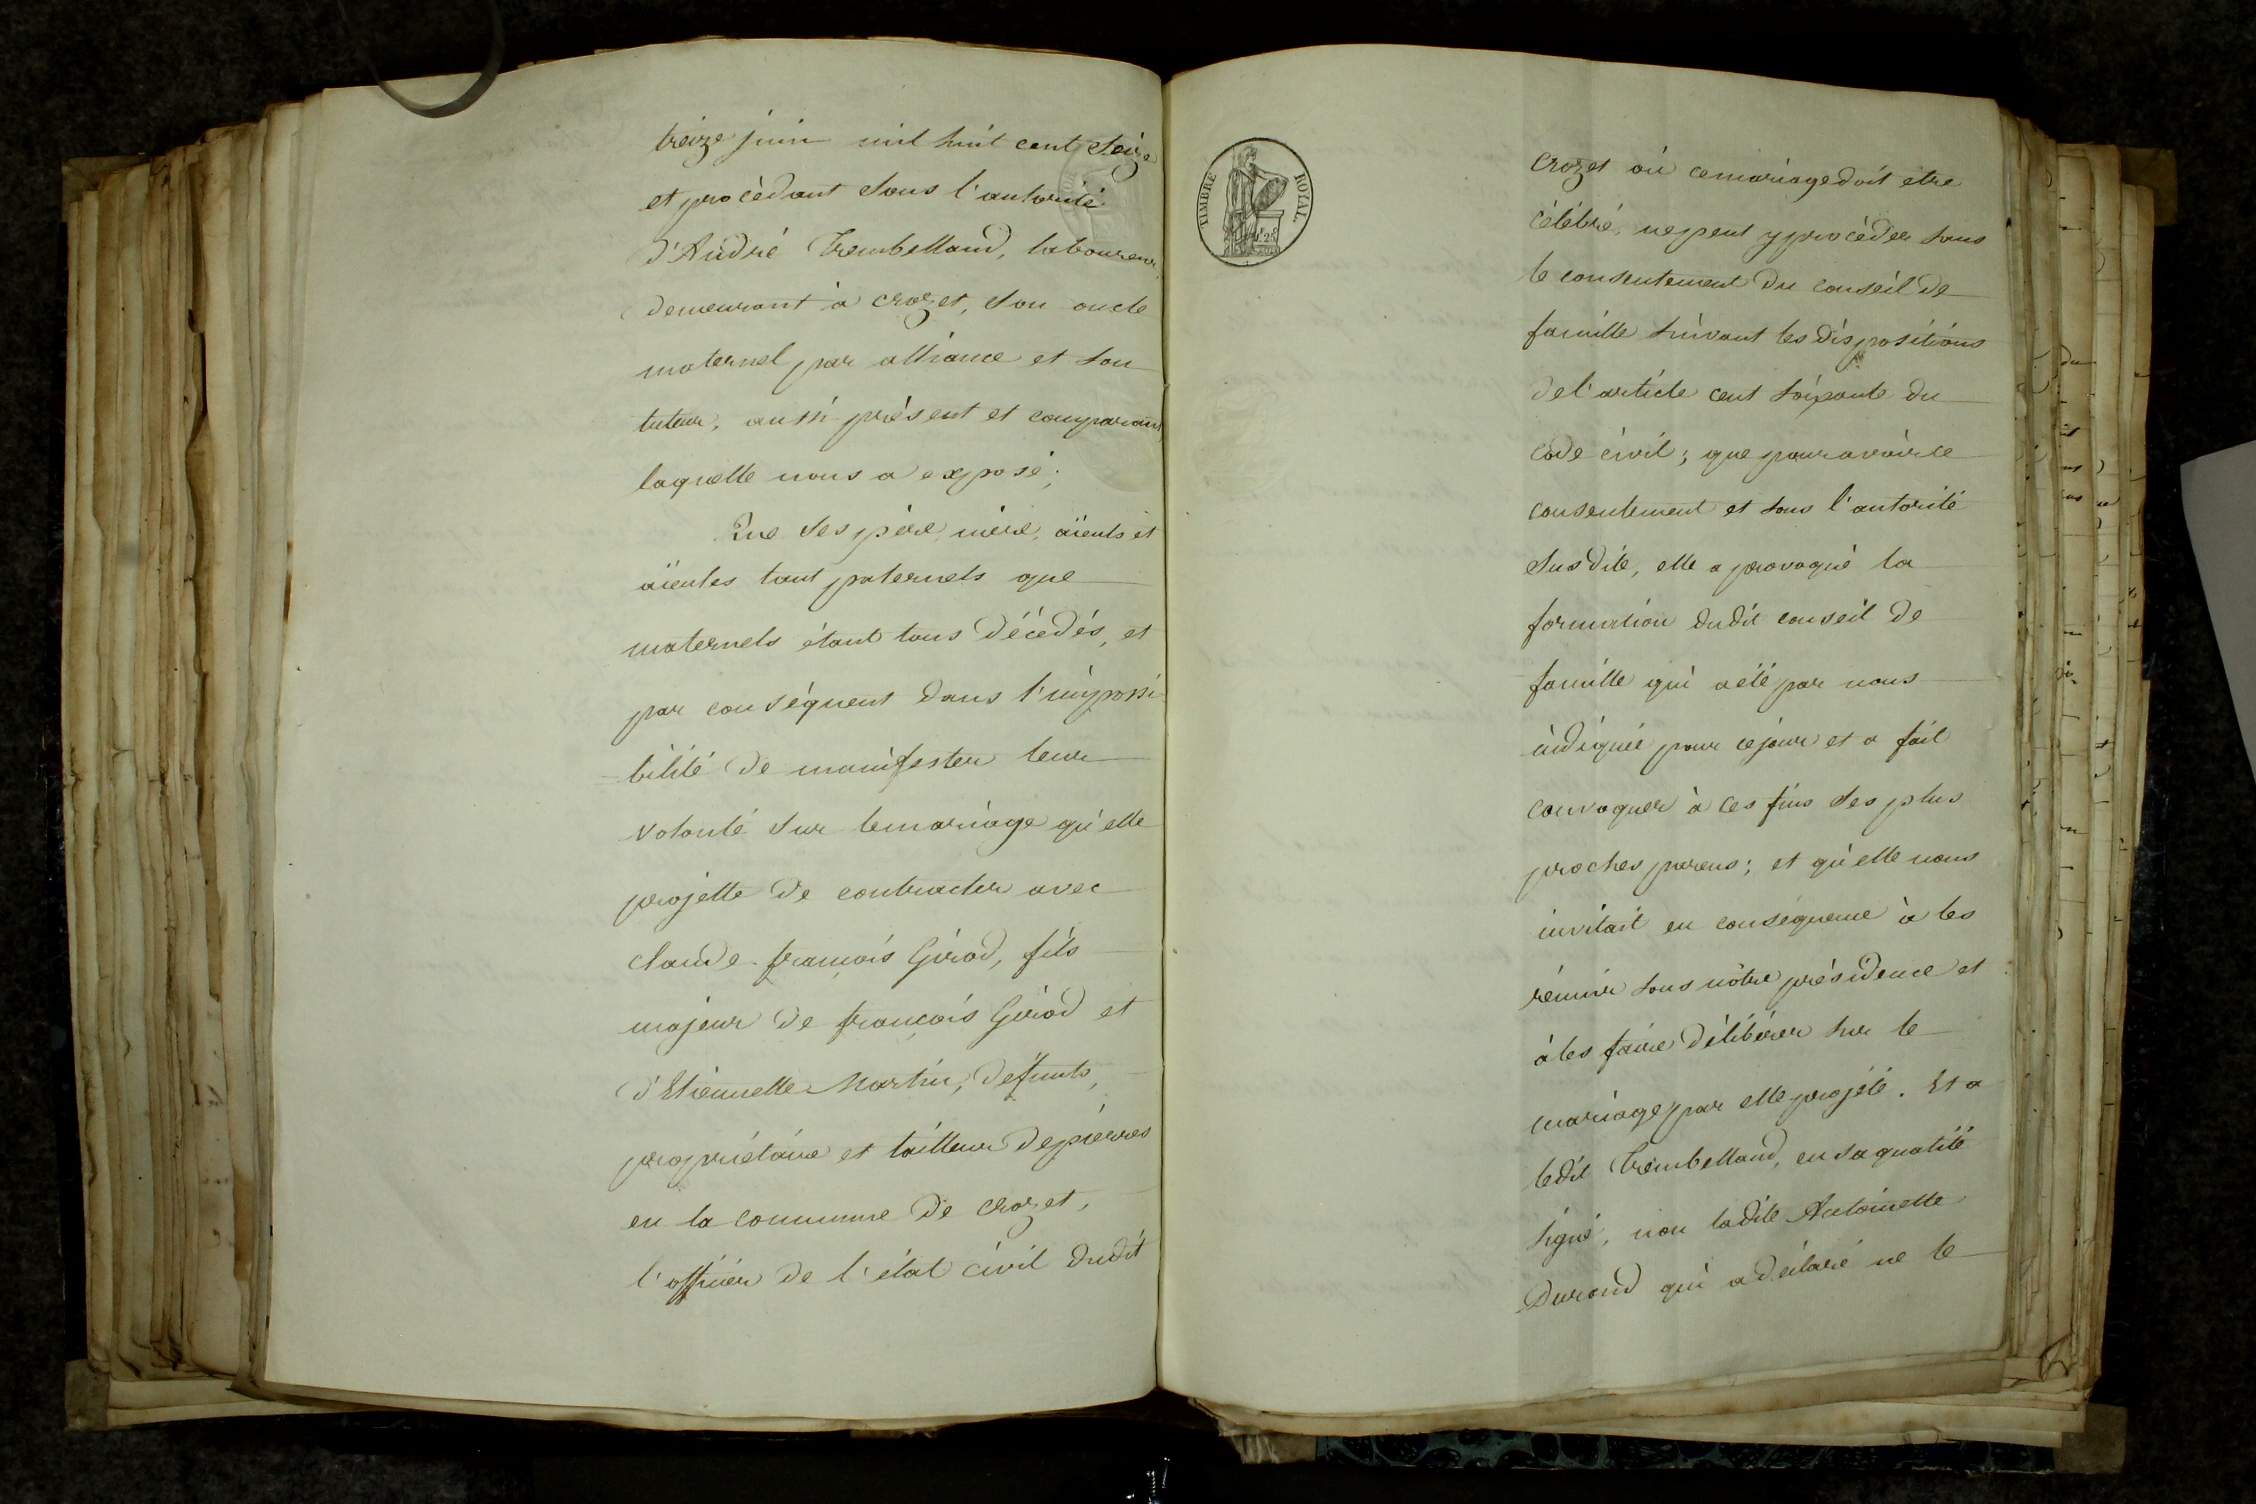 treize juin mil huit cent seize
et procèdant sous l'autorité
d'André Trembelland, laboureur,
demeurant à crozet, son oncle
maternel par alliance et son
tuteur, aussi présent et comparant
laquelle nous a exposé;
Que ses père, mère, aïeuls et
aïeules tant paternels que
maternels étant tous décédés, et
par conséquent dans l'impossi
bilité de manifester leur
volonté sur le mariage qu'elle
projette de contracter avec
claude-françois Girod, fils
majeur de françois Girod et
d'Etiennette Martin, défunts,
propriétaire et tailleur de pierres
en la commune de crozet,
l'officier de l'état civil dudit
TIMBRE ROYAL
crozet où ce mariage doit etre
célébré, ne peut y procéder sans
le consentement du conseil de
famille suivant les dispositions
de l'article cent soixante du
code civil; que pour avoir ce
consentement et sous l'autorité
susdite, elle a provoqué la
formation dudit conseil de
famille qui a été par nous
indiquée pour ce jour et a fait
convoquer à ces fins ses plus
proches parens; et qu'elle nous
invitait en conséquence à les
réunir sous nôtre présidence et
à les faire délibérer sur le
mariage par elle projété. Et a
ledit Trembelland, en sa qualité
signé, non ladite Antoinette
Durand qui a déclaré ne le